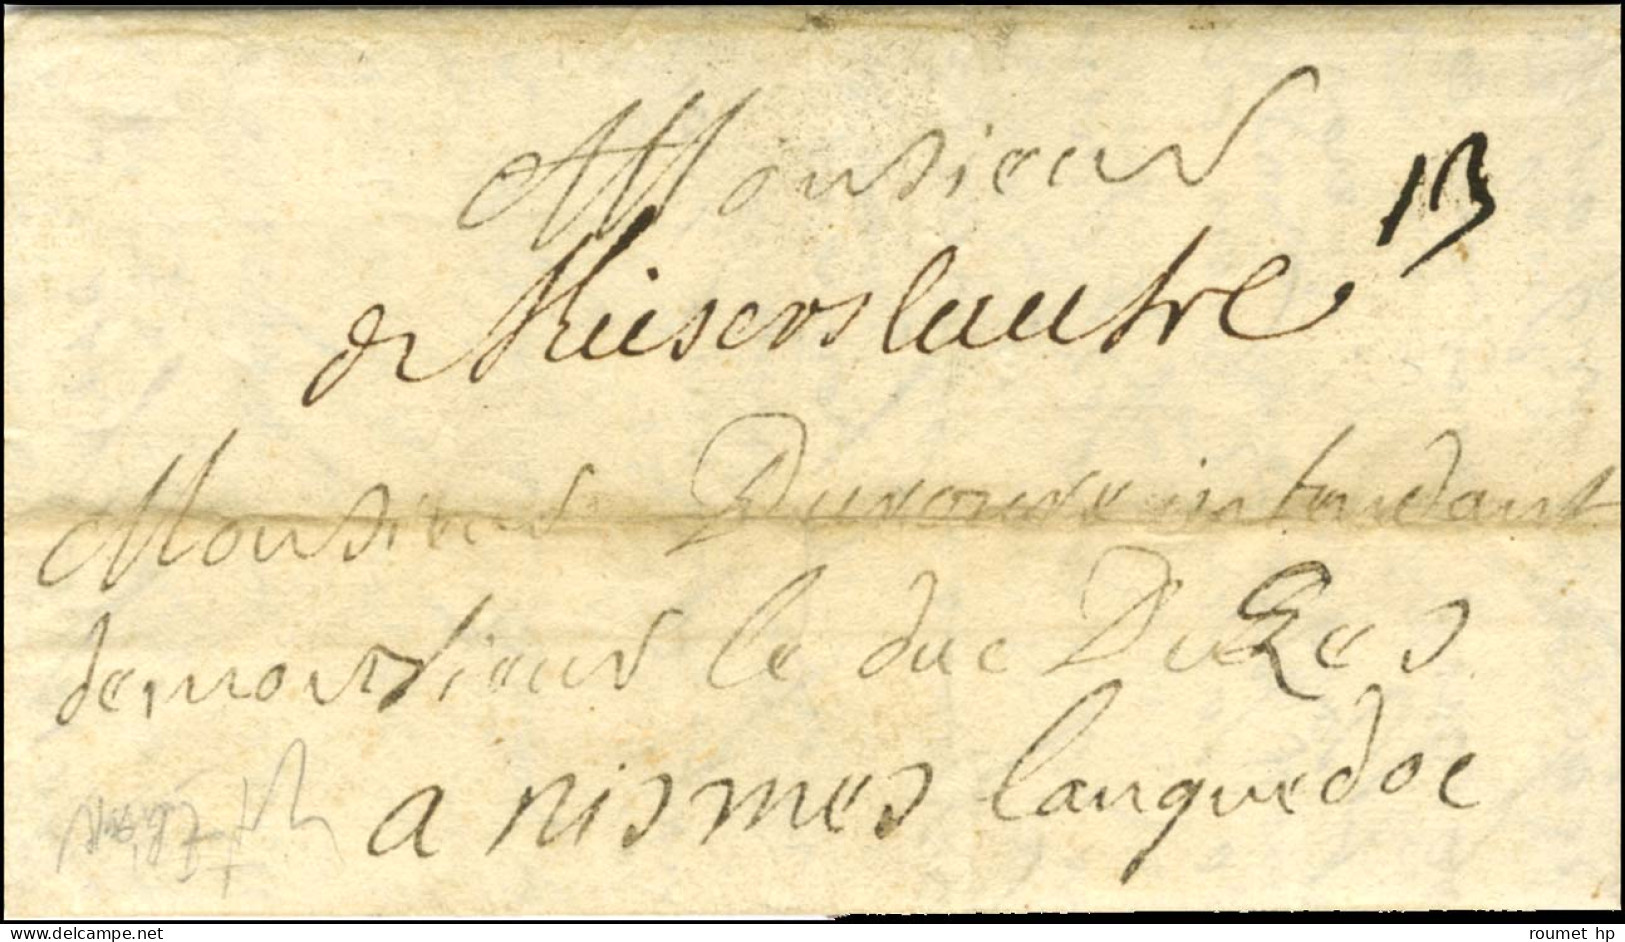 Monsieur
13
de Kaiserslautre
Monsieur intendant
demonsieur le duc DuZes
a nismes languedoc
www.delcampe.net
roumet hp